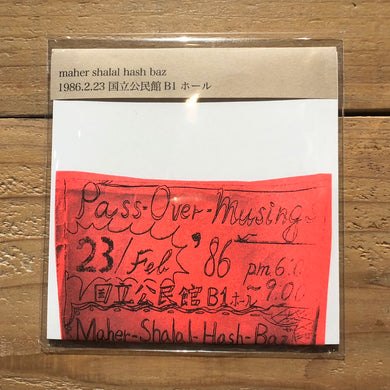 maher shalal hash baz
1986.2.23 国立公民館 B1 ホール
Pass-Over-Musing
23/Feb '86 pm 6:0
国立公民館 B1ホール 9.00
Maher-Shalal-Hash-Baz